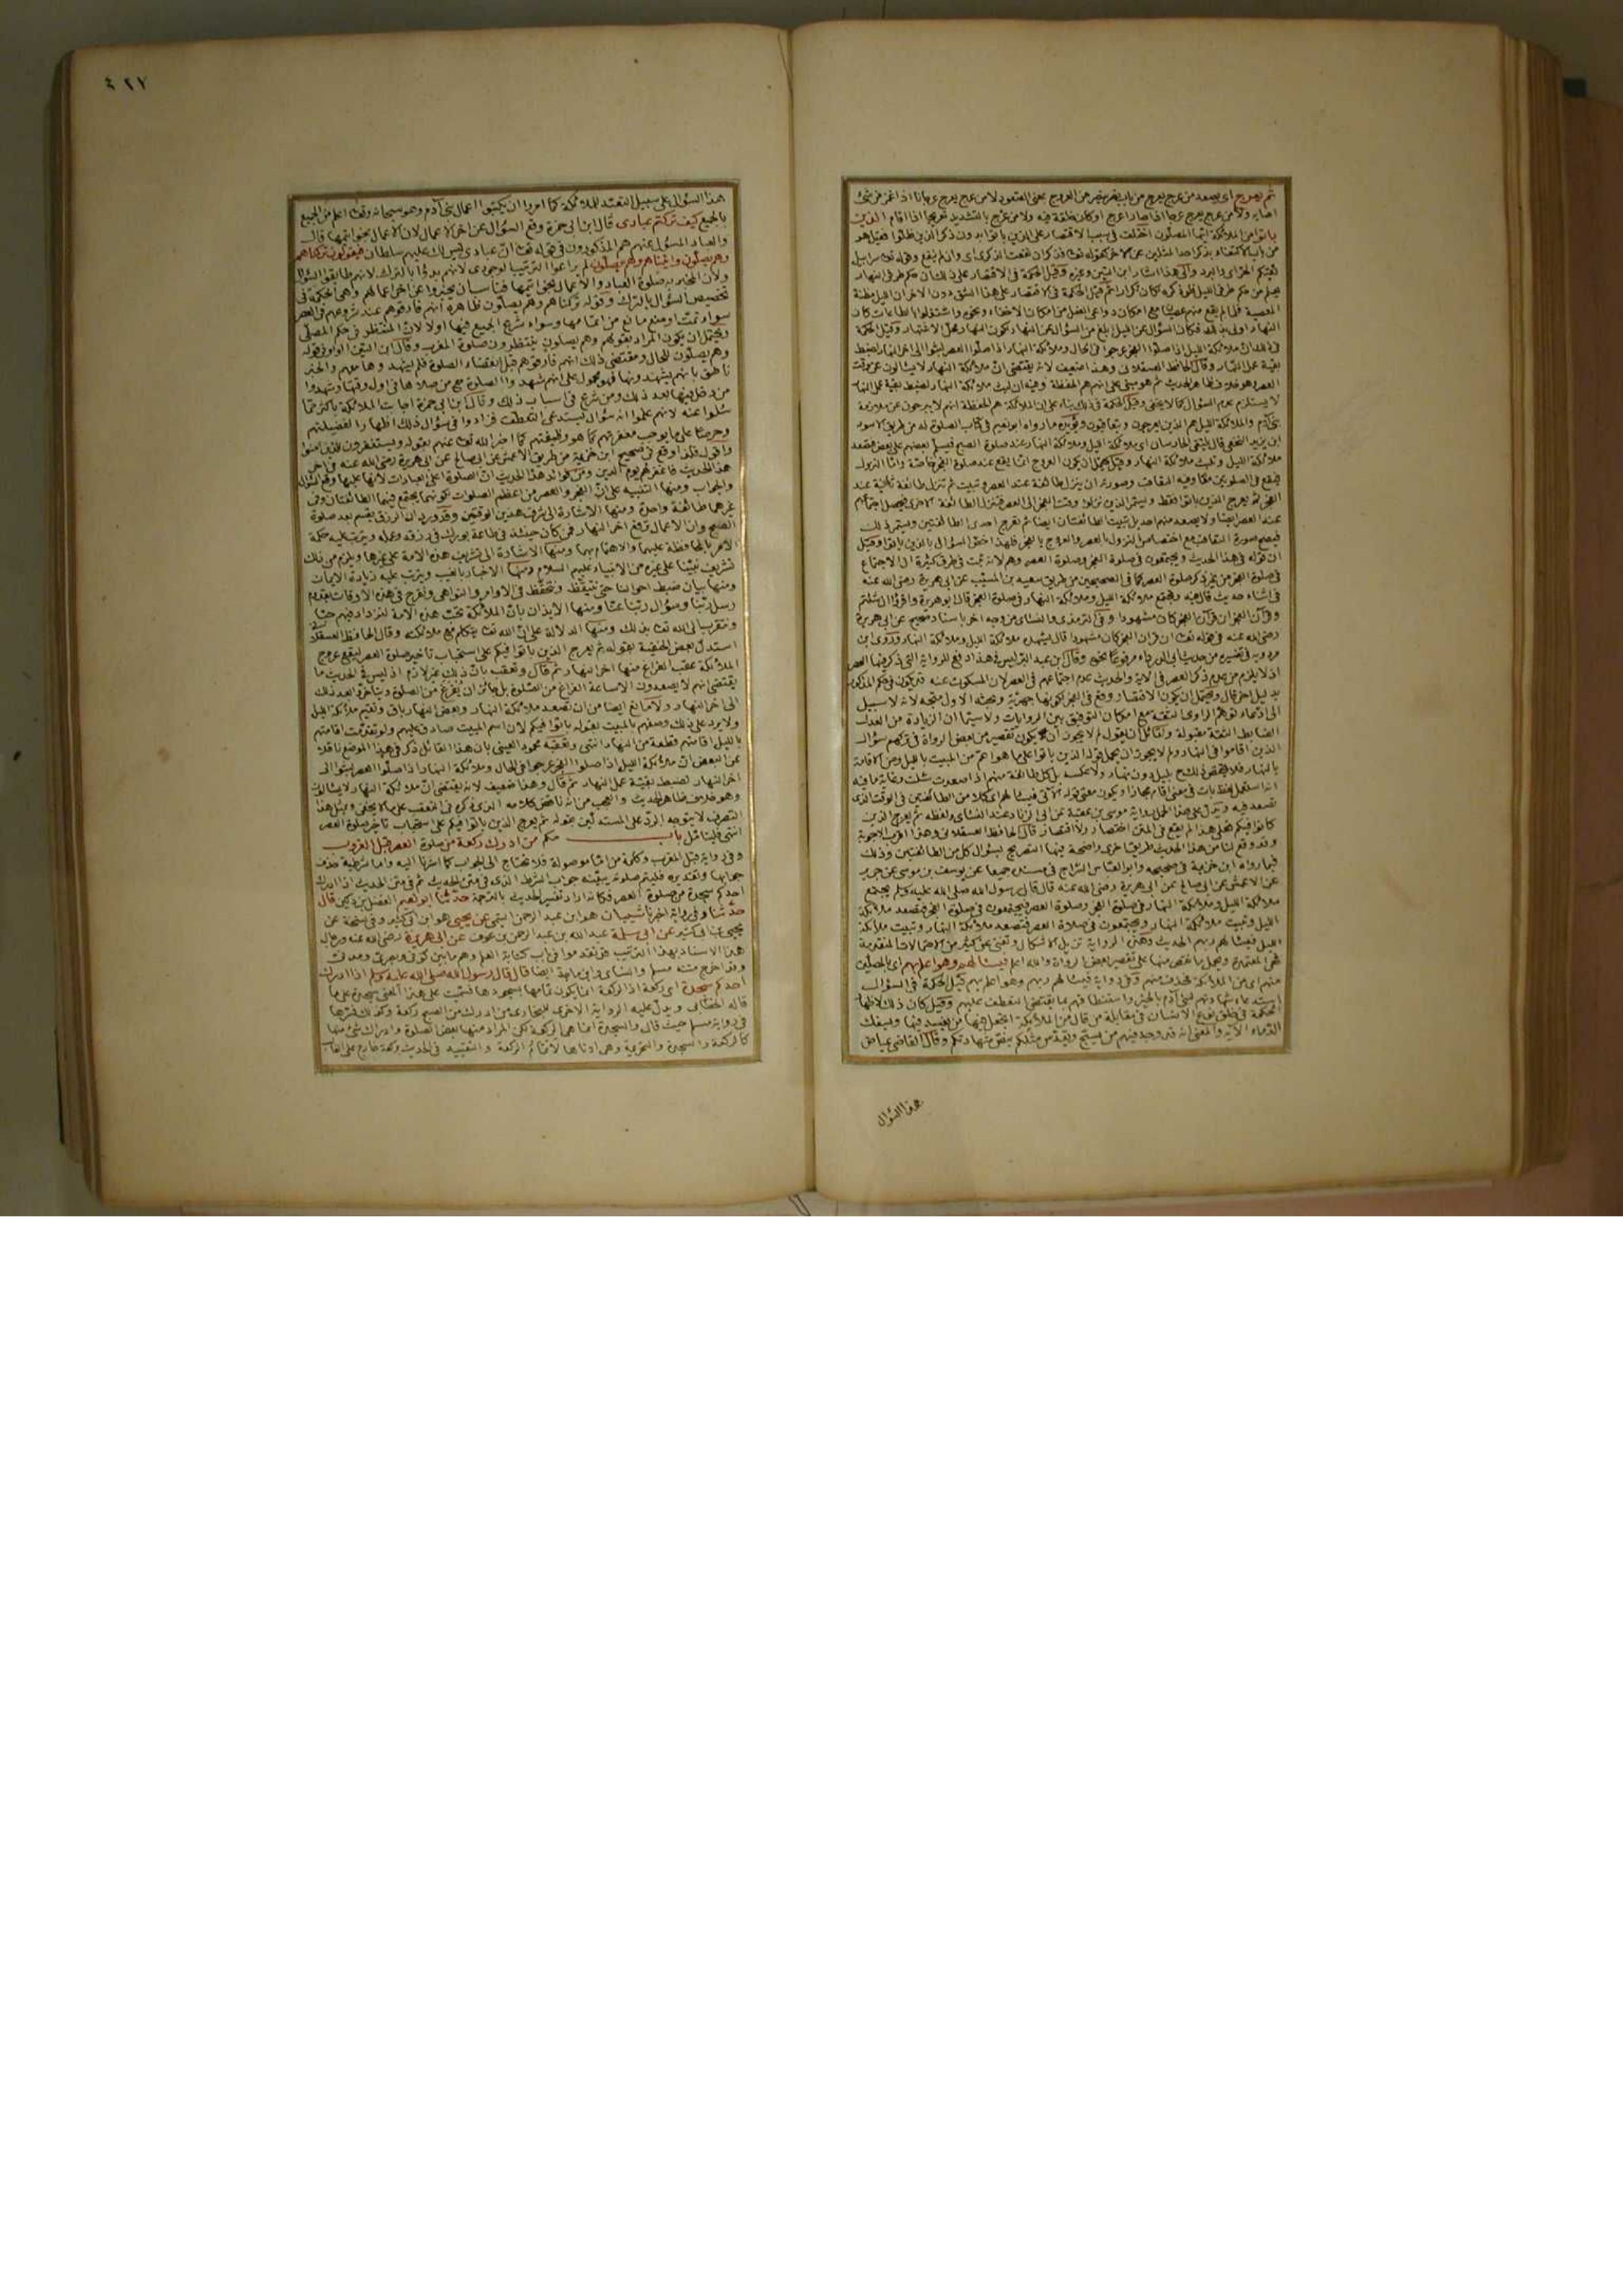 ثم يعرج اى يصعد من عرج يعرج من باب نصر ينصر من العروج بمعنى الصعود لا من عرج يعرج عرجانا اذا غمز من شئ
اصابه ولا من عرج يعرج عرجا اذا صار اعرج او كان خلقة فيه ولا من عرّج بالتشديد تعريجا اذا اقام الذين
باتوا من الملائكة ايها المصلون اختلف فى سبب الاقتصار على الذين باتوا دون ذكر الذين ظلوا فقيل هو
من باب الاكتفاء بذكر احد المثلين عن الآخر كقوله تعالى فذكر ان نفعت الذكرى اى وان لم تنفع وقوله تعالى سرابيل
تقيكم الحر اى والبرد والى هذا اشار ابن التين وغيره وقيل الحكمة فى الاقتصار على ذلك ان حكم طرفى النهار
يعلم من حكم طرفى الليل فلو ذكره لكان تكرارا ثم قيل الحكمة فى الاقتصار على هذا الشق دون الآخر ان الليل مظنة
المعصية فلما لم يقع منهم عصيان مع امكان دواعى الفعل من امكان الاخفاء ونحوه واشتغلوا بالطاعات كان
النهار اولى بذلك فكان السؤال عن الليل ابلغ من السؤال عن النهار لكون النهار محل الاشتهار وقيل الحكمة
فى ذلك ان ملائكة الليل اذا صلوا الفجر عرجوا فى الحال وملائكة النهار اذا صلوا العصر لبثوا الى آخر النهار لضبط
بقية عمل النهار وقال الحافظ العسقلانى وهذا ضعيف لانه يقتضى ان ملائكة النهار لا يسألون عن وقت
العصر وهو خلاف ظاهر الحديث ثم هو مبنى على انهم هم الحفظة وفيه ان لبث ملائكة النهار لضبط بقية عمل النهار
لا يستلزم عدم السؤال كما لا يخفى وقيل الحكمة فى ذلك بناء على ان الملائكة هم الحفظة انهم لا يبرحون عن ملازمة
بنى آدم والملائكة الليل هم الذين يعرجون ويتعاقبون ويؤيده ما رواه ابو نعيم فى كتاب الصلوة له من طريق الاسود
ابن يزيد النخعى قال يلتقى الحارسان اى ملائكة الليل وملائكة النهار عند صلوة الصبح فيسلم بعضهم على بعض فتصعد
ملائكة الليل وتلبث ملائكة النهار وقيل يحتمل ان يكون العروج انما يقع عند صلوة الفجر خاصة واما النزول
فيقع فى الصلوتين معا وفيه التعاقب وصورته ان ينزل طائفة عند العصر وتبيت ثم تنزل طائفة ثانية عند
الفجر ثم يعرج الذين باتوا فقط ويستمر الذين نزلوا وقت الفجر الى العصر فتنزل الطائفة الاخرى فيحصل اجتماعهم
عند العصر ايضا ولا يصعد منهم احد بل تبيت الطائفتان ايضا ثم تعرج احدى الطائفتين ويستمر ذلك
فيصح صورة التعاقب مع اختصاص النزول بالعصر والعروج بالفجر فلهذا خص السؤال بالذين باتوا وقيل
ان قوله فى هذا الحديث ويجتمعون فى صلوة الفجر وصلوة العصر وهم لانه ثبت فى طرق كثيرة ان الاجتماع
فى صلوة الفجر من غير ذكر صلوة العصر كما فى الصحيحين من طريق سعيد بن المسيب عن ابى هريرة رضى الله عنه
فى اثناء حديث قال فيه وتجتمع ملائكة الليل وملائكة النهار فى صلوة الفجر قال ابو هريرة واقرؤا ان شئتم
وقرآن الفجر ان قرآن الفجر كان مشهودا وفى الترمذى والنسائى من وجه آخر باسناد صحيح عن ابى هريرة
رضى الله عنه فى قوله تعالى ان قرآن الفجر كان مشهودا قال يشهده ملائكة الليل وملائكة النهار وروى ابن
مردويه فى تفسيره من حديث ابى الدرداء مرفوعا نحوه وقال ابن عبد البر ليس فى هذا دفع للرواية التى ذكر فيها العصر
اذ لا يلزم من عدم ذكر العصر فى الآية والحديث عدم اجتماعهم فى العصر لان المسكوت عنه قد يكون فى حكم المذكور
بدليل آخر قال ويحتمل ان يكون الاقتصار وقع فى الفجر لكونها جهرية وبحثه الاول متجه لانه لا سبيل
الى ادعاء توهم الراوى الثقة مع امكان التوفيق بين الروايات ولا سيما ان الزيادة من العدل
الضابط الثقة مقبولة ولقائل ان يقول لم لا يجوز ان يكون تقصير من بعض الرواة فى تركهم سؤال
الذين اقاموا فى النهار ولم لا يجوز ان يحمل قوله الذين باتوا على ما هو اعم من المبيت بالليل ومن الاقامة
بالنهار فلا يختص ذلك بليل دون نهار ولا عكسه بل كل طائفة منهم اذا صعدت سئلت وغاية ما فيه
انه استعمل لفظ بات فى معنى اقام مجازا ويكون معنى قوله الآتى فيسألهم اى كلا من الطائفتين فى الوقت الذى
تصعد فيه ويدل على هذا الحمل رواية موسى بن عقبة عن ابى الزناد عند النسائى ولفظه ثم يعرج الذين
كانوا فيكم فعلى هذا لم يقع فى المتن اختصار ولا اقتصار قال الحافظ العسقلانى وهذا اقرب الاجوبة
وقد وقع لنا من هذا الحديث طريق اخرى واضحة فيها التصريح بسؤال كل من الطائفتين وذلك
فيما رواه ابن خزيمة فى صحيحه وابو العباس السراج فى مسنده جميعا عن يوسف بن موسى عن جرير
عن الاعمش عن ابى صالح عن ابى هريرة رضى الله عنه قال قال رسول الله صلى الله عليه وسلم يجتمع
ملائكة الليل وملائكة النهار فى صلوة الفجر وصلوة العصر فيجتمعون فى صلوة الفجر فتصعد ملائكة
الليل وتبيت ملائكة النهار ويجتمعون فى صلاة العصر فتصعد ملائكة النهار وتبيت ملائكة
الليل فيسألهم ربهم الحديث وهذه الرواية تزيل الاشكال وتغنى عن كثير من الاحتمالات المتقدمة
فهى المعتمدة ويحمل ما نقص منها على تقصير بعض الرواة والله اعلم فيسألهم وهو اعلم بهم اى بالمصلين
منهم اى من الملائكة فحذف منهم وفى رواية فيسألهم ربهم وهو اعلم بهم قيل الحكمة فى السؤال
استدعاء شهادتهم لبنى آدم بالخير واستنطاقهم بما يقتضى التعطف عليهم وقيل كان ذلك لاظهار
الحكمة فى خلق نوع الانسان فى مقابلة من قال من الملائكة اتجعل فيها من يفسد فيها ويسفك
الدماء الآية والمعنى انه قد وجد فيهم من يسبح ويقدس مثلكم بنص شهادتكم وقال القاضى عياض
هذا السؤال
٤٢٧
هذا السؤال على سبيل التعبد للملائكة كما امروا ان يكتبوا اعمال بنى آدم وهو سبحانه وتعالى اعلم من الجميع
بالجميع كيف تركتم عبادى قال ابن ابى جمرة وقع السؤال عن آخر الاعمال لان الاعمال بخواتيمها قال
والعباد المسؤل عنهم هم المذكورون فى قوله تعالى ان عبادى ليس لك عليهم سلطان فيقولون تركناهم
وهم يصلون واتيناهم وهم يصلون لم يراعوا الترتيب الوجودى لانهم بدؤا بالترك لانهم طابقوا السؤال
ولان المخبر به صلوة العباد والاعمال بخواتيمها فناسب ان يخبروا عن آخر اعمالهم وهى الحكمة فى
تخصيص السؤال بالترك وقوله تركناهم وهم يصلون ظاهره انهم فارقوهم عند شروعهم فى العصر
سواء تمت او منع مانع من اتمامها وسواء شرع الجميع فيها اولا لان المنتظر فى حكم المصلى
ويحتمل ان يكون المراد بقولهم وهم يصلون ينتظرون صلوة المغرب وقال ابن التين الواو فى قوله
وهم يصلون للحال ومقتضى ذلك انهم فارقوهم قبل انقضاء الصلوة فلم يشهدوها معهم والخبر
ناطق بانهم يشهدونها فهو محمول على انهم شهدوا الصلوة مع من صلاها فى اول وقتها وشهدوا
من دخل فيها بعد ذلك ومن شرع فى اسباب ذلك وقال ابن ابى جمرة اجابت الملائكة باكثر مما
سئلوا عنه لانهم علموا انه سؤال يستدعى التعطف فزادوا فى سؤال ذلك اظهارا لفضيلتهم
وحرصا على ما يوجب مغفرتهم كما هو وظيفتهم كما اخبر الله تعالى عنهم بقوله ويستغفرون للذين آمنوا
واقول فلذا وقع فى صحيح ابن خزيمة من طريق الاعمش عن ابى صالح عن ابى هريرة رضى الله عنه فى آخر
هذا الحديث فاغفر لهم يوم الدين ومن فوائد هذا الحديث ان الصلوة اعلى العبادات لانها عليها وقع السؤال
والجواب ومنها التنبيه على ان الفجر والعصر من اعظم الصلوات لكونهما يجتمع فيهما الطائفتان وفى
غيرهما طائفة واحدة ومنها الاشارة الى شرف هذين الوقتين وقد ورد ان الرزق يقسم بعد صلوة
الصبح وان الاعمال ترفع آخر النهار فمن كان حينئذ فى طاعة بورك فى رزقه وعمله ويترتب عليه حكمة
الامر بالمحافظة عليهما والاهتمام بهما ومنها الاشارة الى تشريف هذه الامة على غيرها ويلزم من ذلك
تشريف نبينا على غيره من الانبياء عليهم السلام ومنها الاخبار بالغيب ويترتب عليه زيادة الايمان
ومنها بيان ضبط احوالنا حتى نتيقظ ونتحفظ فى الاوامر والنواهى ونفرح فى هذه الاوقات بقدوم
رسل ربنا وسؤال ربنا عنا ومنها الايذان بان الملائكة تحب هذه الامة لنزداد فيهم حبا
ونتقرب الى الله تعالى بذلك ومنها الدلالة على ان الله تعالى يتكلم مع ملائكته وقال الحافظ العسقلانى
استدل بعض الحنفية بقوله ثم يعرج الذين باتوا فيكم على استحباب تأخير صلوة العصر ليقع عروج
الملائكة عقب الفراغ منها آخر النهار ثم قال وتعقب بان ذلك غير لازم اذ ليس فى الحديث ما
يقتضى انهم لا يصعدون الا ساعة الفراغ من الصلوة بل جائز ان تفرغ من الصلوة ويتأخروا بعد ذلك
الى آخر النهار ولا مانع ايضا من ان تصعد ملائكة النهار وبعض النهار باق وتقيم ملائكة الليل
ولا يرد على ذلك وصفهم بالمبيت لقوله باتوا فيكم لان اسم المبيت صادق عليهم ولو تقدمت اقامتهم
بالليل اقامتهم قطعة من النهار انتهى وتعقبه محمود العينى بان هذا القائل ذكر فى هذا الموضع ناقلا
عن البعض ان ملائكة الليل اذا صلوا الفجر عرجوا فى الحال وملائكة النهار اذا صلوا العصر لبثوا الى
آخر النهار لضبط بقية عمل النهار ثم قال وهذا ضعيف لانه يقتضى ان ملائكة النهار لا يسألون
وهو خلاف ظاهر الحديث والعجب من انه ناقض كلامه الذى ذكره فى التعقب على ما لا يخفى وبمثل هذا
التصرف لا يتوجه الرد على المستدلين بقوله ثم يعرج الذين باتوا فيكم على استحباب تأخير صلوة العصر
انتهى فليتأمل باب حكم من ادرك ركعة من صلوة العصر قبل الغروب
وفى رواية قبل المغرب وكلمة من اما موصولة فلا تحتاج الى الجواب كما اشرنا اليه واما شرطية حذف
جوابها وتقديره فليتم صلوته يبينه جواب الشرط الذى فى متن الحديث ثم فى متن الحديث اذا ادرك
احدكم سجدة من صلوة العصر فكأنه اراد تفسير الحديث بالترجمة حدثنا ابو نعيم الفضل بن دكين قال
حدثنا وفى رواية اخبرنا شيبان هو ابن عبد الرحمن التيمى عن يحيى هو ابن ابى كثير وفى نسخة عن
يحيى بن ابى كثير عن ابى سلمة عبد الله بن عبد الرحمن بن عوف عن ابى هريرة رضى الله عنه ورجال
هذا الاسناد بهذا الترتيب قد تقدموا فى باب كتابة العلم وهم ما بين كوفى وبصرى ومدنى
وقد اخرج متنه مسلم والنسائى وابن ماجة ايضا قال قال رسول الله صلى الله عليه وسلم اذا ادرك
احدكم سجدة اى ركعة اذ الركعة انما يكون تمامها بسجودها فسميت على هذا المعنى سجدة على ما
قاله الخطابى ويدل عليه الرواية الاخرى للبخارى من ادرك من الصبح ركعة وكذلك فسرها
فى رواية مسلم حيث قال والسجدة انما هى الركعة لكن المراد منها بعض الصلوة وادراك شئ منها
كالركعة والسجدة والتحريمة وهى ادناها لا تمام الركعة والتقييد فى الحديث بركعة خارج على الغالب